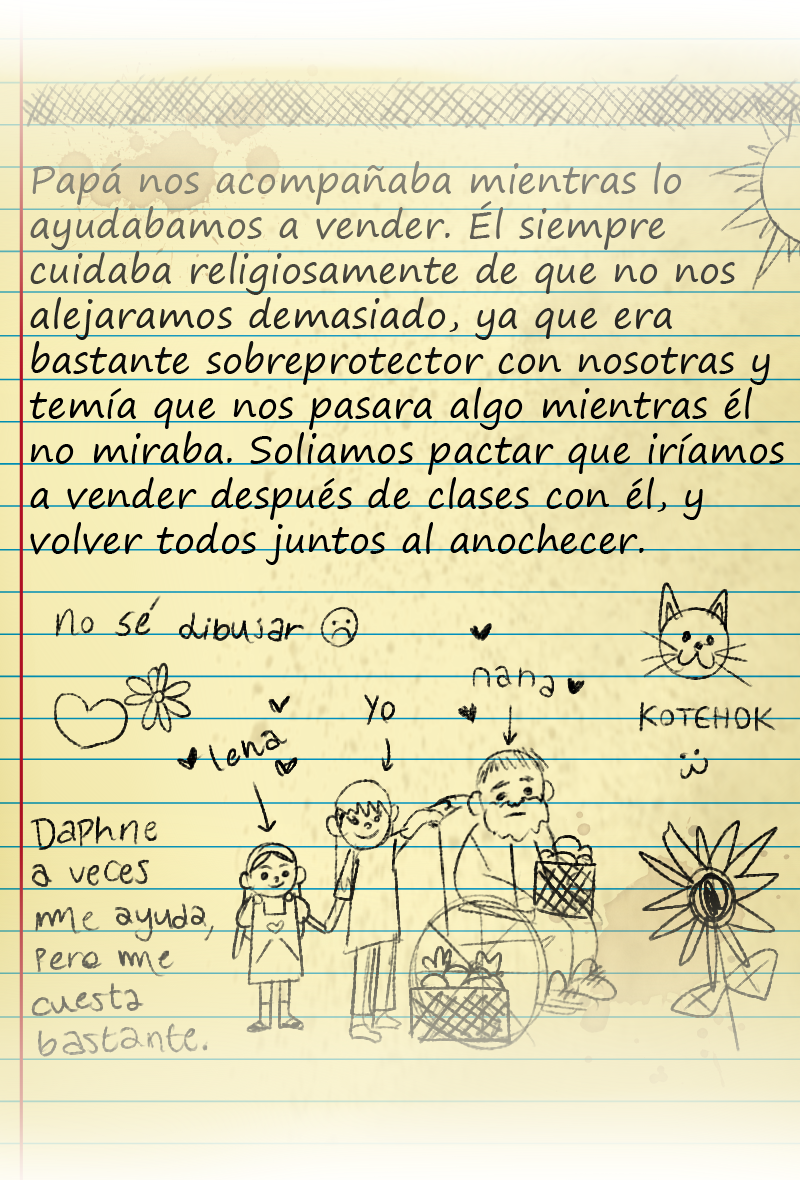 Papá nos acompañaba mientras lo
ayudabamos a vender. Él siempre
cuidaba religiosamente de que no nos
alejaramos demasiado, ya que era
bastante sobreprotector con nosotras y
temía que nos pasara algo mientras él
no miraba. Soliamos pactar que iríamos
a vender después de clases con él, y
volver todos juntos al anochecer.
no sé dibujar
nana
yo
lena
KOTEHOK
Daphne
a veces
me ayuda,
Pero me
cuesta
bastante.